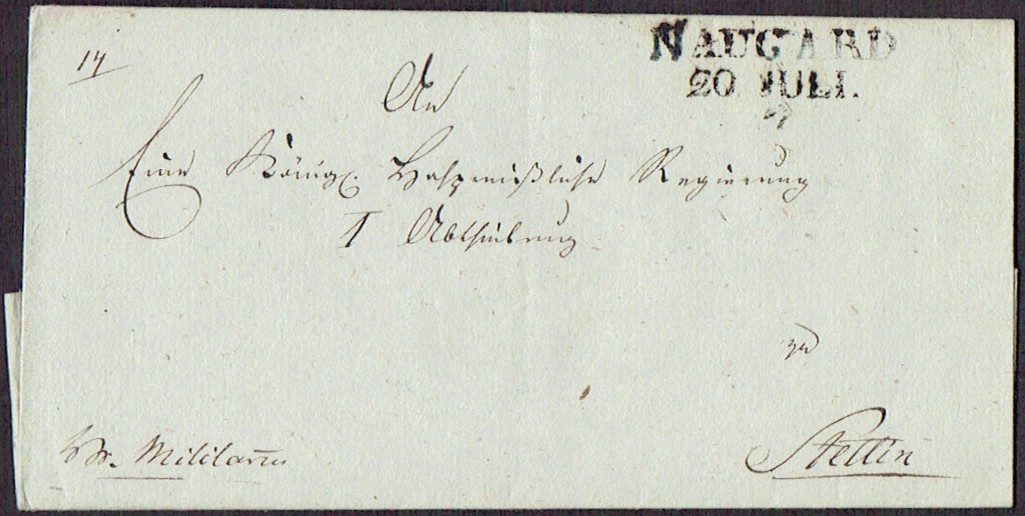 NAUGARD
20 JULI.
14
An
Eine Königl. Hochpreißliche Regierung
I Abtheilung
zu
Stettin
Militaria